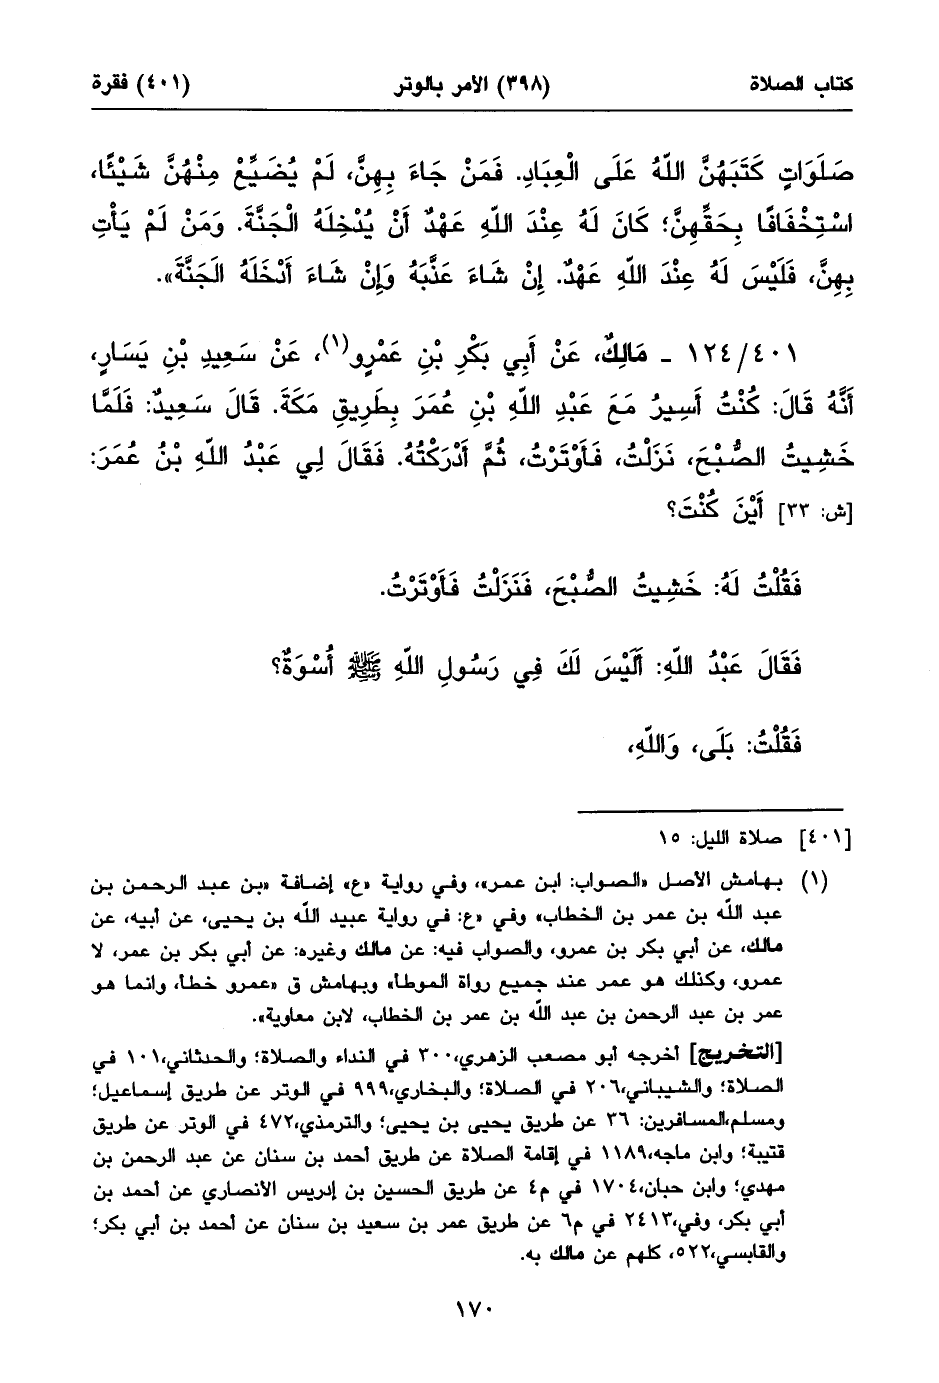 كتاب الصلاة (٣٩٨) الأمر بالوتر (٤٠١) فقرة
صَلَوَاتٍ كَتَبَهُنَّ اللَّهُ عَلَى الْعِبَادِ. فَمَنْ جَاءَ بِهِنَّ، لَمْ يُضَيِّعْ مِنْهُنَّ شَيْئًا،
اسْتِخْفَافًا بِحَقِّهِنَّ؛ كَانَ لَهُ عِنْدَ اللَّهِ عَهْدٌ أَنْ يُدْخِلَهُ الْجَنَّةَ. وَمَنْ لَمْ يَأْتِ
بِهِنَّ، فَلَيْسَ لَهُ عِنْدَ اللَّهِ عَهْدٌ. إِنْ شَاءَ عَذَّبَهُ وَإِنْ شَاءَ أَدْخَلَهُ الْجَنَّةَ».
١٢٤/٤٠١ - مَالِكٌ، عَنْ أَبِي بَكْرِ بْنِ عَمْرٍو(١)، عَنْ سَعِيدِ بْنِ يَسَارٍ،
أَنَّهُ قَالَ: كُنْتُ أَسِيرُ مَعَ عَبْدِ اللَّهِ بْنِ عُمَرَ بِطَرِيقِ مَكَةَ. قَالَ سَعِيدٌ: فَلَمَّا
خَشِيتُ الصُّبْحَ، نَزَلْتُ، فَأَوْتَرْتُ، ثُمَّ أَدْرَكْتُهُ. فَقَالَ لِي عَبْدُ اللَّهِ بْنُ عُمَرَ:
[ش: ٣٣] أَيْنَ كُنْتَ؟
فَقُلْتُ لَهُ: خَشِيتُ الصُّبْحَ، فَنَزَلْتُ فَأَوْتَرْتُ.
فَقَالَ عَبْدُ اللَّهِ: أَلَيْسَ لَكَ فِي رَسُولِ اللَّهِ ﷺ أُسْوَةٌ؟
فَقُلْتُ: بَلَى، وَاللَّهِ،
[٤٠١] صلاة الليل: ١٥
(١) بهامش الأصل «الصواب: ابن عمر»، وفي رواية «ع» إضافة «بن عبد الرحمن بن
عبد الله بن عمر بن الخطاب» وفي «ع: في رواية عبيد الله بن يحيى، عن أبيه، عن
مالك، عن أبي بكر بن عمرو، والصواب فيه: عن مالك وغيره: عن أبي بكر بن عمر، لا
عمرو، وكذلك هو عمر عند جميع رواة الموطأ» وبهامش ق «عمرو خطأ، وانما هو
عمر بن عبد الرحمن بن عبد الله بن عمر بن الخطاب، لابن معاوية».
[التخريج] أخرجه أبو مصعب الزهري،٣٠٠ في النداء والصلاة؛ والحدثاني،١٠١ في
الصلاة؛ والشيباني،٢٠٦ في الصلاة؛ والبخاري،٩٩٩ في الوتر عن طريق إسماعيل؛
ومسلم،المسافرين: ٣٦ عن طريق يحيى بن يحيى؛ والترمذي،٤٧٢ في الوتر عن طريق
قتيبة؛ وابن ماجه،١١٨٩ في إقامة الصلاة عن طريق أحمد بن سنان عن عبد الرحمن بن
مهدي؛ وابن حبان،١٧٠٤ في م٤ عن طريق الحسين بن إدريس الأنصاري عن أحمد بن
أبي بكر، وفي،٢٤١٣ في م٦ عن طريق عمر بن سعيد بن سنان عن أحمد بن أبي بكر؛
والقابسي،٥٢٢، كلهم عن مالك به.
١٧٠